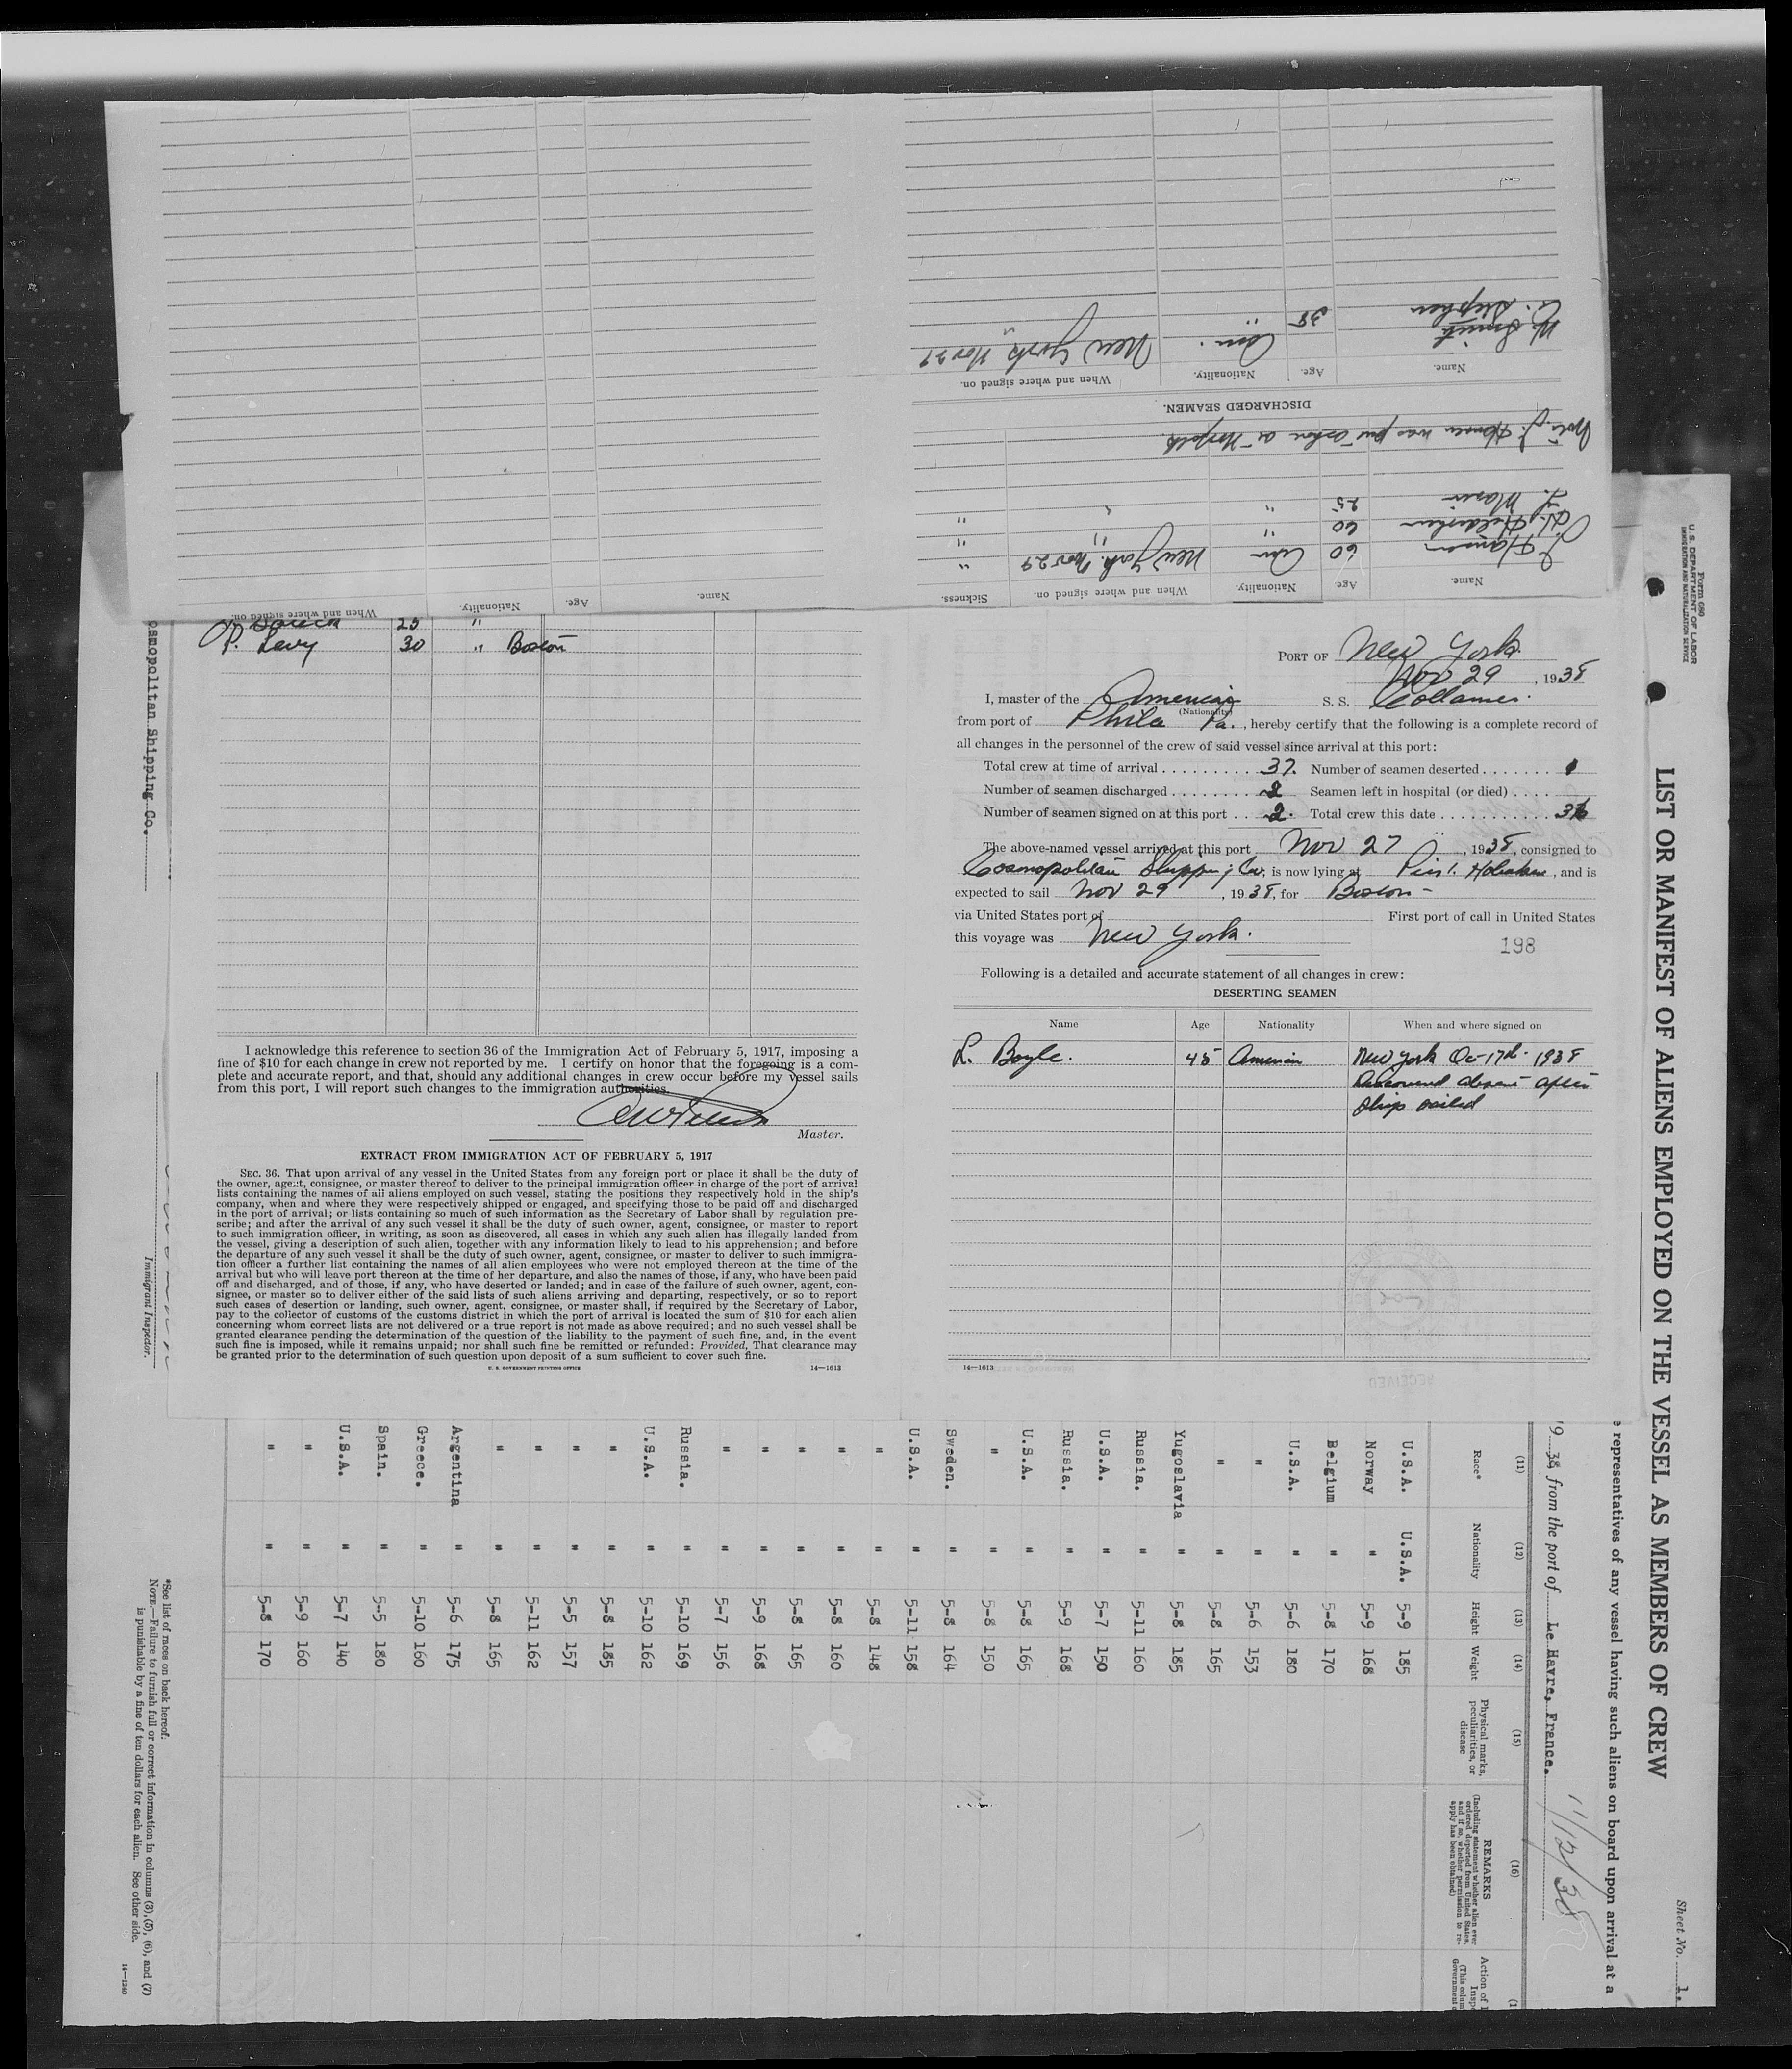 Name.
Age.
Nationality.
When and where signed on.
Sickness.
J. Hansen 60 Am New York. Nov 29 "
60 " " "
25 " " "
Note. J. Hansen was put ashore at Norfolk.
DISCHARGED SEAMEN.
Name. Age. Nationality. When and where signed on.
W. Smith 38 Am. New York Nov 29
C. Stephen " "
Name. Age. Nationality. When and where signed on.
25 "
P. Levy 30 " Boston
I acknowledge this reference to section 36 of the Immigration Act of February 5, 1917, imposing a
fine of $10 for each change in crew not reported by me. I certify on honor that the foregoing is a com-
plete and accurate report, and that, should any additional changes in crew occur before my vessel sails
from this port, I will report such changes to the immigration authorities.
Master.
EXTRACT FROM IMMIGRATION ACT OF FEBRUARY 5, 1917
SEC. 36. That upon arrival of any vessel in the United States from any foreign port or place it shall be the duty of
the owner, agent, consignee, or master thereof to deliver to the principal immigration officer in charge of the port of arrival
lists containing the names of all aliens employed on such vessel, stating the positions they respectively hold in the ship's
company, when and where they were respectively shipped or engaged, and specifying those to be paid off and discharged
in the port of arrival; or lists containing so much of such information as the Secretary of Labor shall by regulation pre-
scribe; and after the arrival of any such vessel it shall be the duty of such owner, agent, consignee, or master to report
to such immigration officer, in writing, as soon as discovered, all cases in which any such alien has illegally landed from
the vessel, giving a description of such alien, together with any information likely to lead to his apprehension; and before
the departure of any such vessel it shall be the duty of such owner, agent, consignee, or master to deliver to such immigra-
tion officer a further list containing the names of all alien employees who were not employed thereon at the time of the
arrival but who will leave port thereon at the time of her departure, and also the names of those, if any, who have been paid
off and discharged, and of those, if any, who have deserted or landed; and in case of the failure of such owner, agent, con-
signee, or master so to deliver either of the said lists of such aliens arriving and departing, respectively, or so to report
such cases of desertion or landing, such owner, agent, consignee, or master shall, if required by the Secretary of Labor,
pay to the collector of customs of the customs district in which the port of arrival is located the sum of $10 for each alien
concerning whom correct lists are not delivered or a true report is not made as above required; and no such vessel shall be
granted clearance pending the determination of the question of the liability to the payment of such fine, and, in the event
such fine is imposed, while it remains unpaid; nor shall such fine be remitted or refunded: Provided, That clearance may
be granted prior to the determination of such question upon deposit of a sum sufficient to cover such fine.
U. S. GOVERNMENT PRINTING OFFICE 14—1613
PORT OF New York.
Nov 29, 1938
I, master of the American S. S. Collamer.
(Nationality)
from port of Phila Pa., hereby certify that the following is a complete record of
all changes in the personnel of the crew of said vessel since arrival at this port:
Total crew at time of arrival 37. Number of seamen deserted 1
Number of seamen discharged 2 Seamen left in hospital (or died)
Number of seamen signed on at this port 2. Total crew this date 36
The above-named vessel arrived at this port Nov 27, 1938, consigned to
Cosmopolitan Shipping Co, is now lying at Pier 1. Hoboken, and is
expected to sail Nov 29, 1938, for Boston -
via United States port of First port of call in United States
this voyage was New York.
198
Following is a detailed and accurate statement of all changes in crew:
DESERTING SEAMEN
Name Age Nationality When and where signed on
L. Boyle. 45 American New York Oct 17th 1938
Discovered absent after
ship sailed
14—1613
RECEIVED
osmopolitan Shipping Co.
Immigrant Inspector.
Form 680
U. S. DEPARTMENT OF LABOR
IMMIGRATION AND NATURALIZATION SERVICE
Sheet No. 1.
LIST OR MANIFEST OF ALIENS EMPLOYED ON THE VESSEL AS MEMBERS OF CREW
e representatives of any vessel having such aliens on board upon arrival at a
19 38 from the port of Le Havre, France. 11/12/38
(11) (12) (13) (14) (15) (16)
Race* Nationality Height Weight Physical marks, peculiarities, or disease
REMARKS
(Including statement whether alien ever
ordered deported from United States,
and if so, whether permission to re-
apply has been obtained)
U.S.A. U.S.A. 5-9 185
Norway " 5-9 168
Belgium " 5-8 170
U.S.A. " 5-6 180
" " 5-6 153
" " 5-8 165
Yugoslavia " 5-8 185
Russia. " 5-11 160
U.S.A. " 5-7 150
Russia. " 5-9 168
U.S.A. " 5-8 165
" " 5-8 150
Sweden. " 5-8 164
U.S.A. " 5-11 158
" " 5-8 148
" " 5-8 160
" " 5-8 165
" " 5-9 168
" " 5-7 156
Russia. " 5-10 169
U.S.A. " 5-10 162
" " 5-8 185
" " 5-5 157
" " 5-11 162
" " 5-8 165
Argentina " 5-6 175
Greece. " 5-10 160
Spain. " 5-5 180
U.S.A. " 5-7 140
" " 5-9 160
" " 5-8 170
*See list of races on back hereof.
NOTE.—Failure to furnish full or correct information in columns (3), (5), (6), and (7)
is punishable by a fine of ten dollars for each alien. See other side.
14—1240